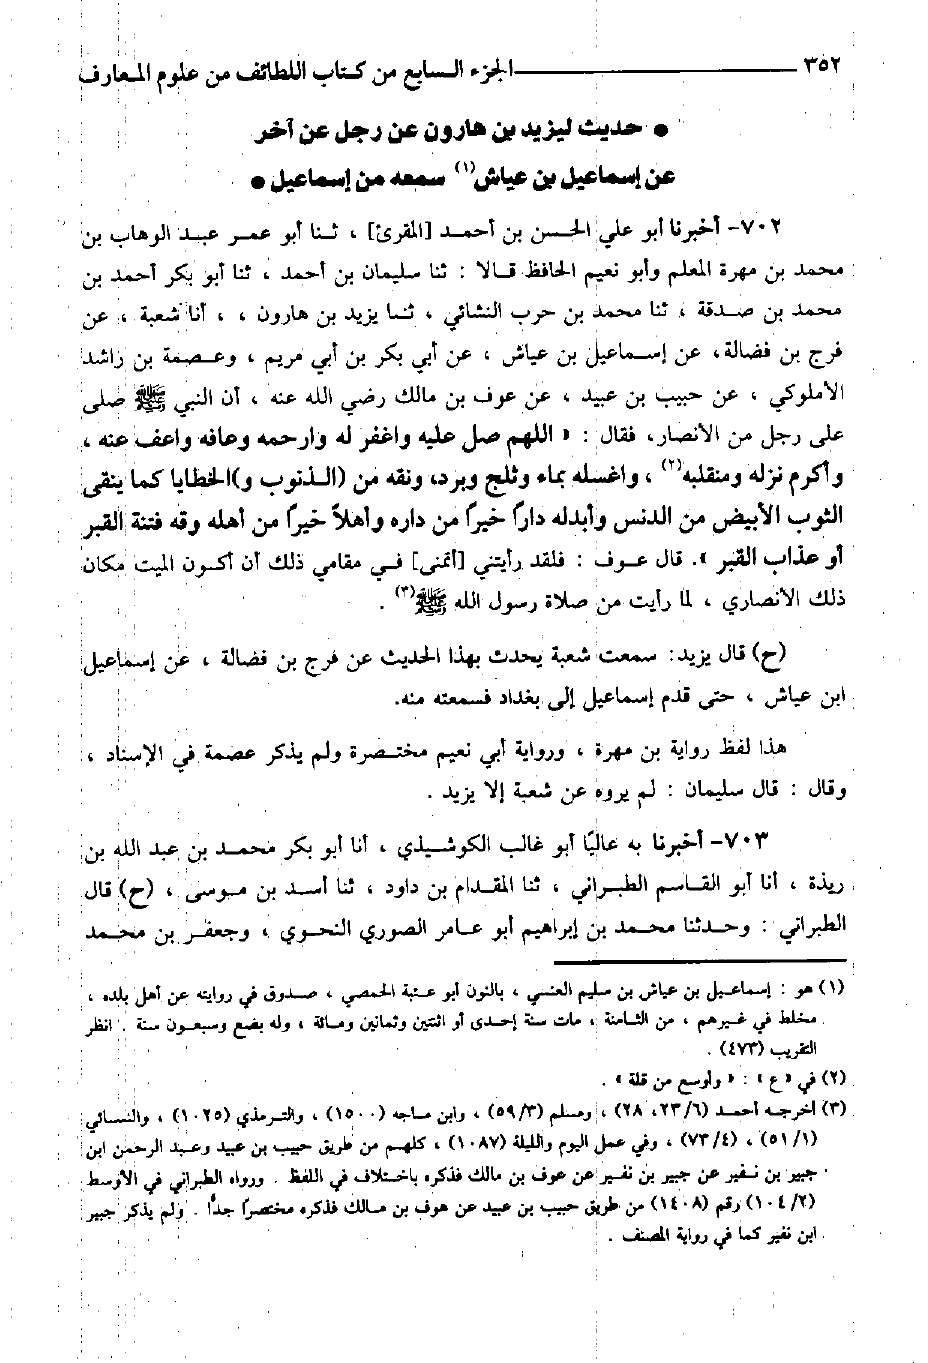 ٣٥٢ ــــــــــــــ الجزء السابع من كتاب اللطائف من علوم المعارف
● حديث ليزيد بن هارون عن رجل عن آخر
عن إسماعيل بن عياش(١) سمعه من إسماعيل ●
٧٠٢- أخبرنا أبو علي الحسن بن أحمد [المقرئ] ، ثنا أبو عمر عبد الوهاب بن
محمد بن مهرة المعلم وأبو نعيم الحافظ قالا : ثنا سليمان بن أحمد ، ثنا أبو بكر أحمد بن
محمد بن صدقة ، ثنا محمد بن حرب النشائي ، ثنا يزيد بن هارون ، ، أنا شعبة ، عن
فرج بن فضالة، عن إسماعيل بن عياش ، عن أبي بكر بن أبي مريم ، وعصمة بن راشد
الأملوكي ، عن حبيب بن عبيد ، عن عوف بن مالك رضي الله عنه ، أن النبي ﷺ صلى
على رجل من الأنصار، فقال : « اللهم صل عليه واغفر له وارحمه وعافه واعف عنه ،
وأكرم نزله ومنقلبه(٢) ، واغسله بماء وثلج وبرد، ونقه من (الذنوب و)الخطايا كما ينقى
الثوب الأبيض من الدنس وأبدله دارًا خيرًا من داره وأهلاً خيرًا من أهله وقه فتنة القبر
أو عذاب القبر ». قال عوف : فلقد رأيتني [أتمنى] في مقامي ذلك أن أكون الميت مكان
ذلك الأنصاري ، لما رأيت من صلاة رسول الله ﷺ(٣) .
(ح) قال يزيد: سمعت شعبة يحدث بهذا الحديث عن فرج بن فضالة ، عن إسماعيل
ابن عياش ، حتى قدم إسماعيل إلى بغداد فسمعته منه.
هذا لفظ رواية بن مهرة ، ورواية أبي نعيم مختصرة ولم يذكر عصمة في الإسناد ،
وقال : قال سليمان : لم يروه عن شعبة إلا يزيد .
٧٠٣- أخبرنا به عاليًا أبو غالب الكوشيذي ، أنا أبو بكر محمد بن عبد الله بن
ريذة ، أنا أبو القاسم الطبراني ، ثنا المقدام بن داود ، ثنا أسد بن موسى ، (ح) قال
الطبراني : وحدثنا محمد بن إبراهيم أبو عامر الصوري النحوي ، وجعفر بن محمد
(١) هو : إسماعيل بن عياش بن سليم العنسي ، بالنون أبو عتبة الحمصي ، صدوق في روايته عن أهل بلده ،
مخلط في غيرهم ، من الثامنة ، مات سنة إحدى أو اثنتين وثمانين ومائة ، وله بضع وسبعون سنة . انظر
التقريب (٤٧٣) .
(٢) في «ع» : « وأوسع من قلة » .
(٣) أخرجه أحمد (٢٣/٦، ٢٨) ، ومسلم (٥٩/٣) ، وابن ماجه (١٥٠٠) ، والترمذي (١٠٢٥) ، والنسائي
(٥١/١) ، (٧٣/٤) ، وفي عمل اليوم والليلة (١٠٨٧) ، كلهم من طريق حبيب بن عبيد وعبد الرحمن ابن
جبير بن نفير عن جبير بن نفير عن عوف بن مالك فذكره باختلاف في اللفظ . ورواه الطبراني في الأوسط
(١٠٤/٢) رقم (١٤٠٨) من طريق حبيب بن عبيد عن عوف بن مالك فذكره مختصرًا جدًا . ولم يذكر جبير
ابن نفير كما في رواية المصنف .